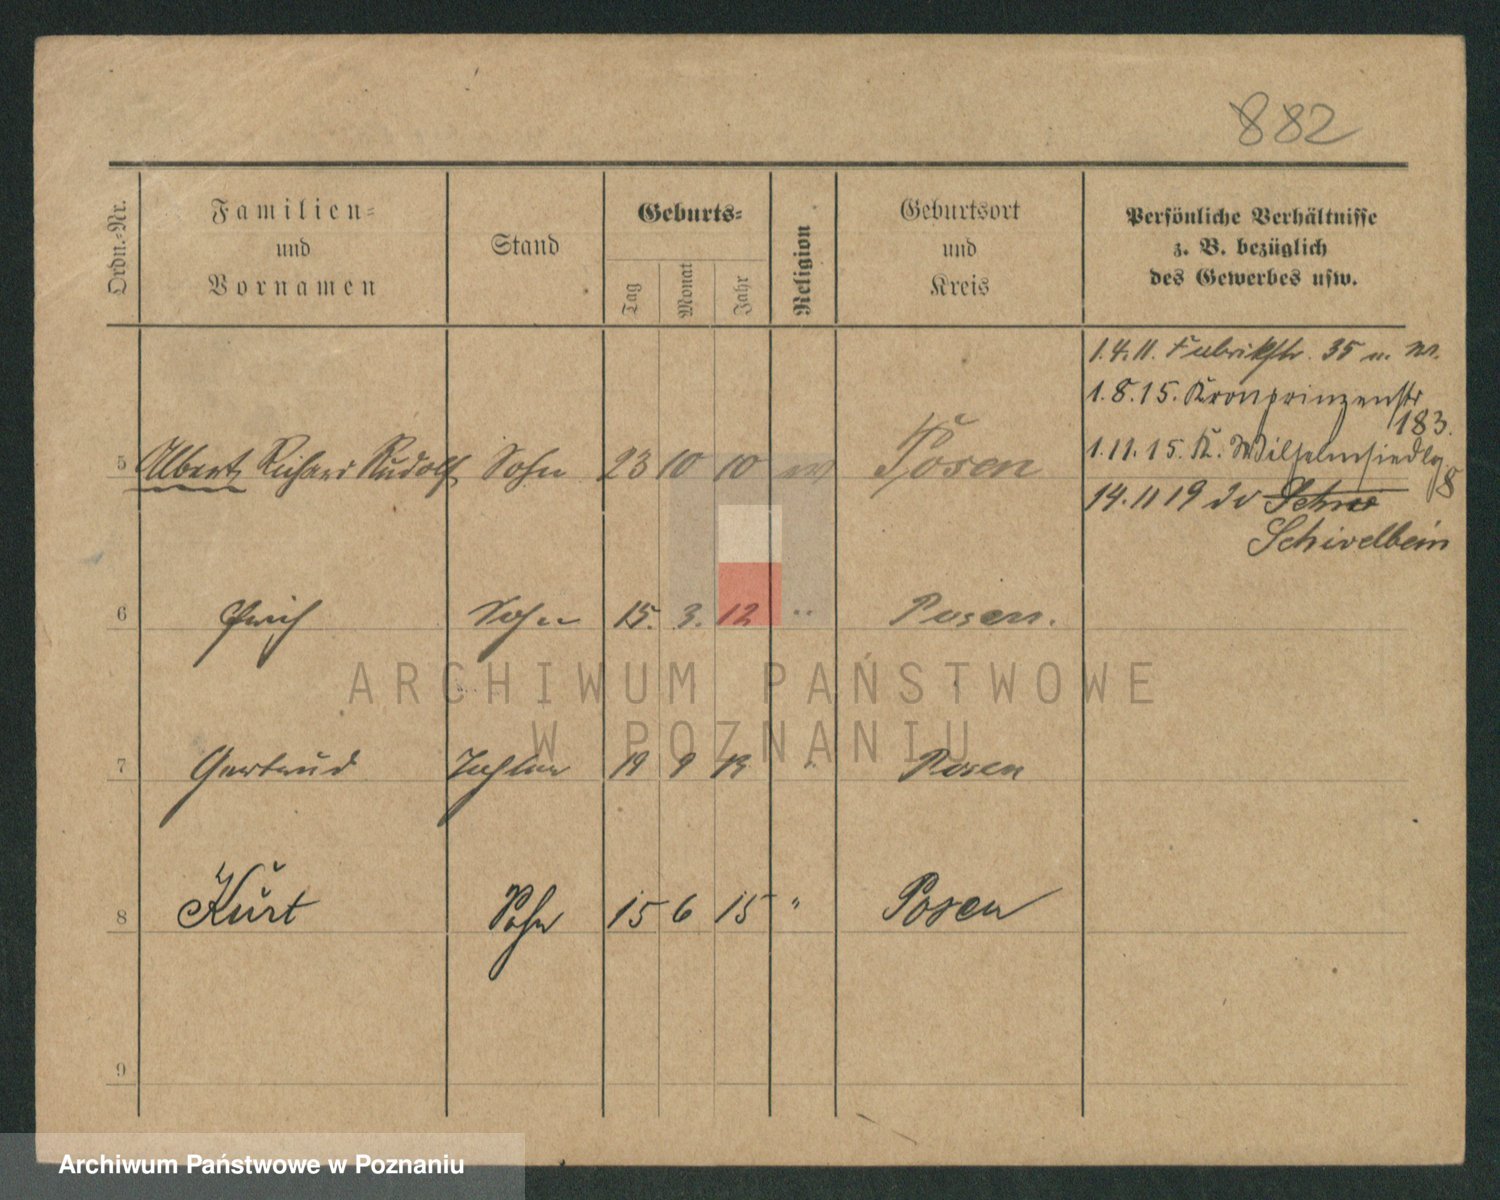 882
Ordn.-Nr.
Familien-
und
Vornamen
Stand
Geburts-
Tag
Monat
Jahr
Religion
Geburtsort
und
Kreis
Persönliche Verhältnisse
z. B. bezüglich
des Gewerbes usw.
1.4.11. Fabrikstr. 35 u. W.
1.8.15. Kronprinzenstr
183.
1.11.15. K. Wilhelmsiedlg
8
14.11 19 Schiv
Schivelbein
5 Albert Richard Rudolf Sohn 23 10 10 Posen
6 Erich Sohn 15. 3. 12 " Posen.
7 Gertrud Tochter 19 9 13 " Posen
8 Kurt Sohn 15 6 15 " Posen
9
ARCHIWUM PAŃSTWOWE
W POZNANIU
Archiwum Państwowe w Poznaniu